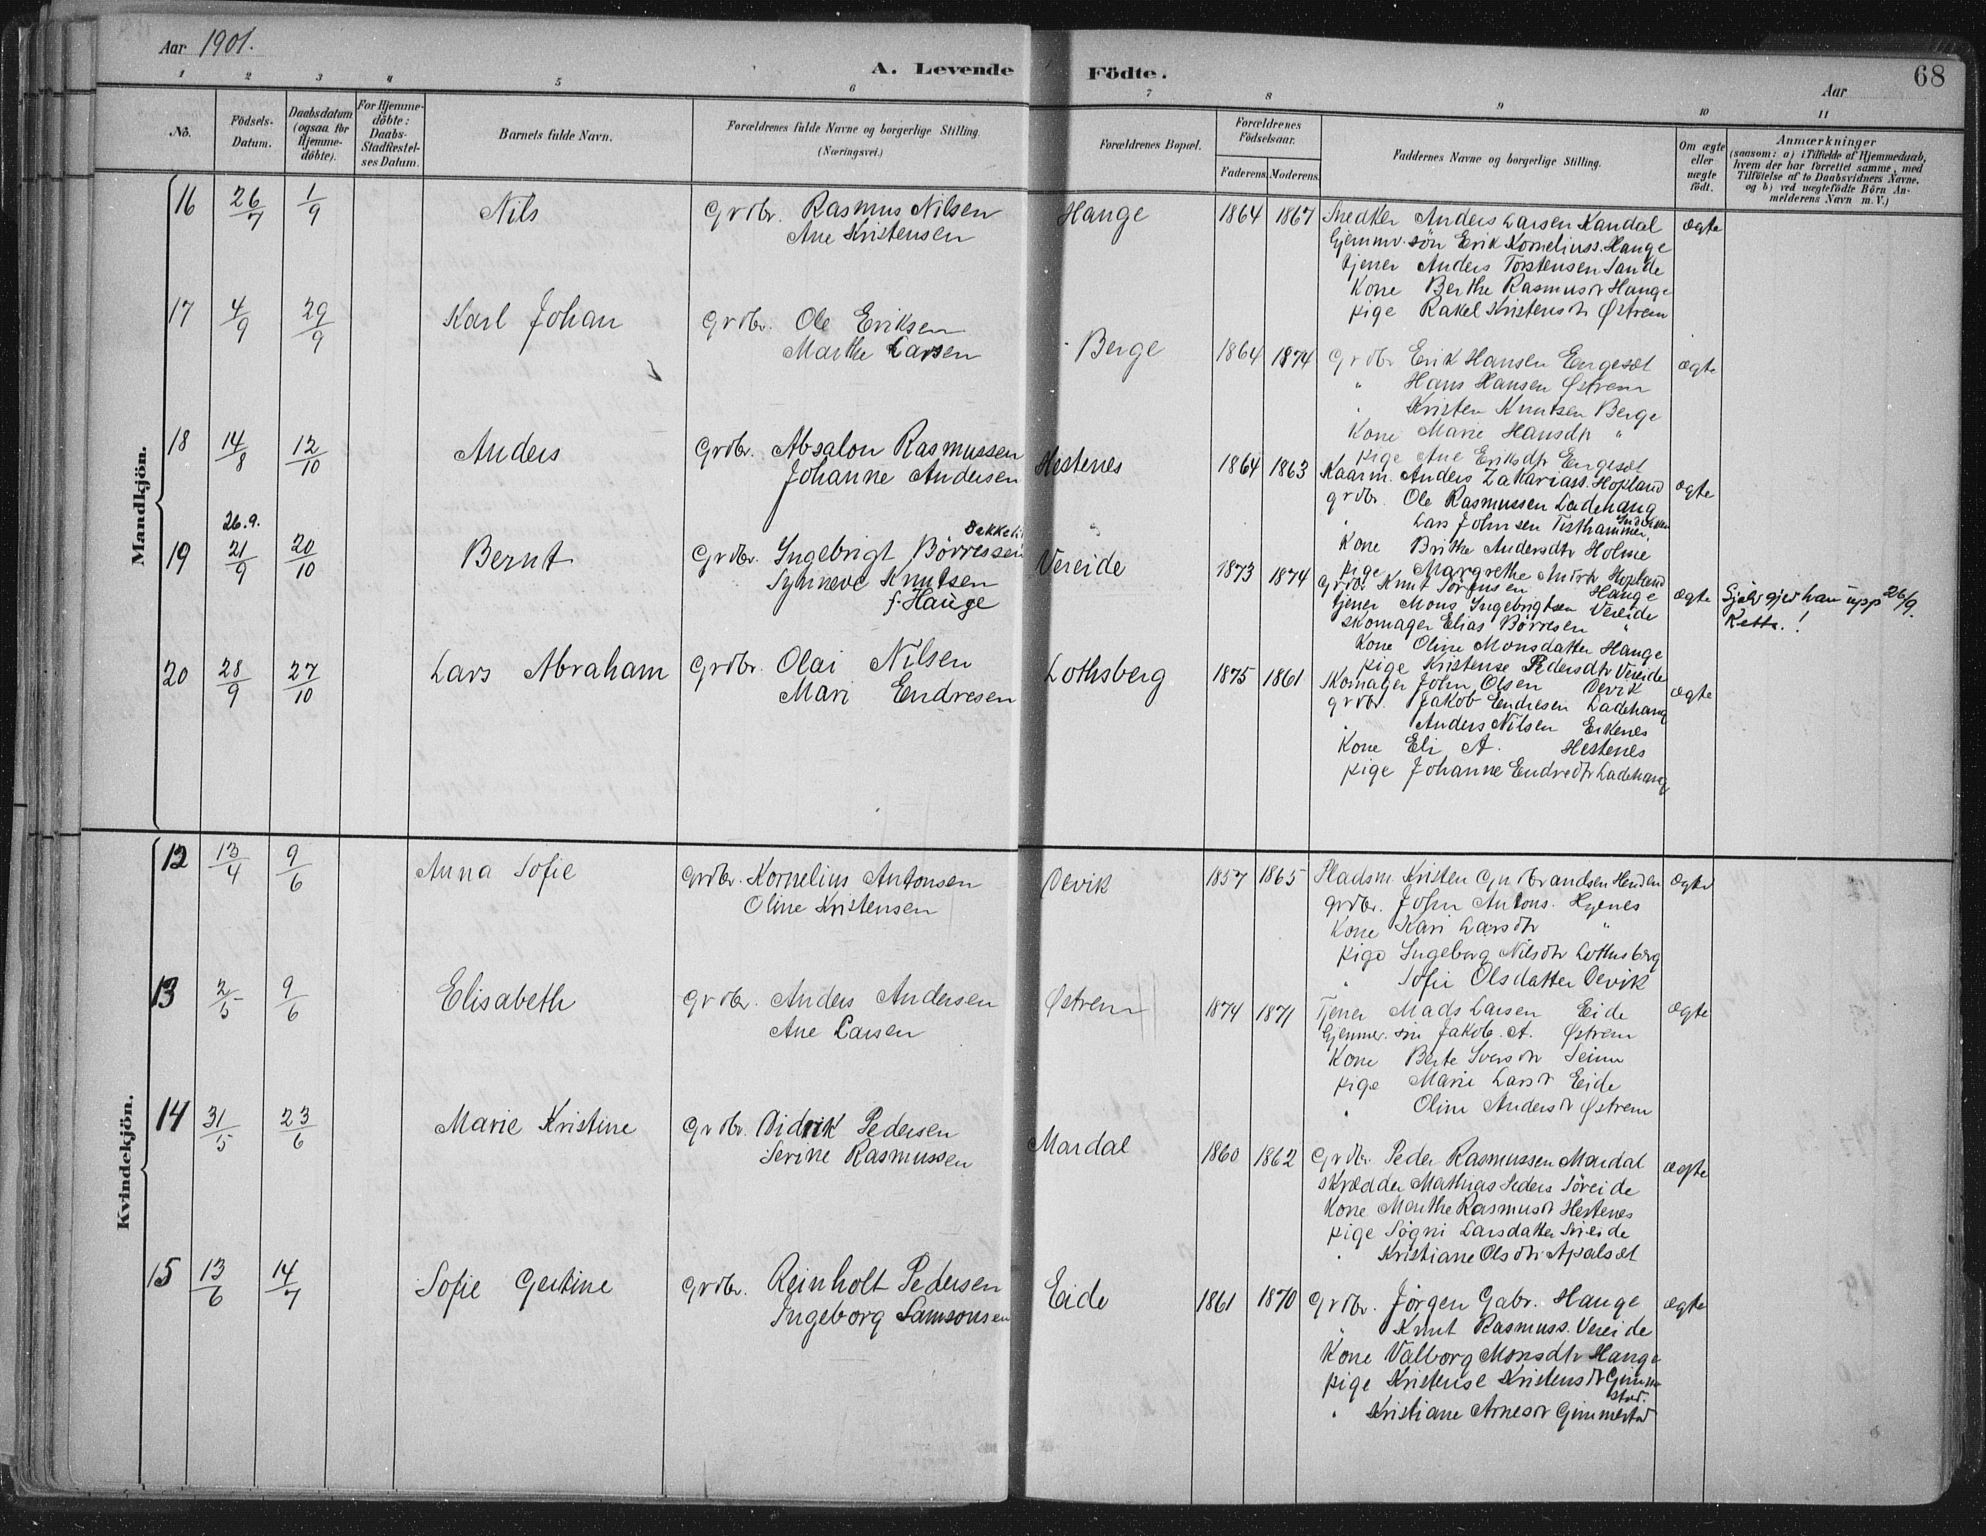 Aar 1901.
A. Levende Födte.
Aar
68
1 2 3 4 5 6 7 8 9 10 11
No.
Födsels-Datum.
Daabsdatum (ogsaa for Hjemme-döbte).
For Hjemme-döbte: Daabs-Stadfæstel-ses Datum.
Barnets fulde Navn.
Forældrenes fulde Navne og borgerlige Stilling. (Næringsvei.)
Forældrenes Bopæl.
Forældrenes Födselsaar.
Faderens. Moderens.
Faddernes Navne og borgerlige Stilling.
Om ægte eller uægte födt.
Anmærkninger
(saasom: a) i Tilfælde af Hjemmedaab, hvem der har forrettet samme, med Tilföielse af to Daabsvidners Navne, og b) ved uægtefödte Börn An-melderens Navn m. V.)
Mandkjön.
16 26/7 1/9 Nils Grdbr. Rasmus Nilsen
Ane Kristensen
Hauge 1864 1867 Snedker Anders Larsen Kandal ægte
Gjemmv. søn Erik Korneliuss. Hauge
tjener Anders Torstensen Sande
Kone Berthe Rasmusdr Hauge
pige Rakel Kristensdr Østrem
17 4/9 29/9 Karl Johan Grdbr. Ole Eriksen
Marthe Larsen
Berge 1864 1874 Grdbr Erik Hansen Engeset ægte
" Hans Hansen Østrem
" Kristen Knutsen Berge
Kone Marie Hansdtr "
pige Ane Eriksdtr Engeset
18 14/8 12/10 Anders Grdbr. Absalon Rasmussen
Johanne Andersen
Hestenes 1864 1863 Kaarm. Anders Zakariass. Hopland ægte
grdbr. Ole Rasmussen Ladehaug
" Lars Johnsen Tisthammer,
Kone Brithe Andersdtr Holme
pige Margrethe Andrsdr Hopland
19 26.9. 21/9 20/10 Bernt Grdbr. Ingebrigt Børressen
Synneve Knutsen
f. Hauge
Vereide 1873 1874 Grdbr Knut Sørensen Hauge ægte
tjener Mons Ingebrigtsen Vereide
Skomager Elias Børresen "
Kone Oline Monsdatter Hauge
pige Kristense Pedersdtr Vereide
Sjølv gjev han upp 26/9.
Rette.!
20 28/9 27/10 Lars Abraham Grdbr. Olai Nilsen
Mari Endresen
Lothsberg 1875 1861 Skomager John Olsen Devik ægte
grdbr. Jakob Endresen Ladehaug
" Anders Nilsen Eikenes
Kone Eli A. Hestenes
pige Johanne Endredtr Ladehaug
Kvindekjön.
12 13/4 9/6 Anna Sofie Grdbr. Kornelius Antonsen
Oline Kristensen
Devik 1857 1865 Pladsm. Kristen Gudbrandsen Henden ægte
grdbr. John Antons. Hyenes
Kone Kari Larsdtr "
pige Ingeborg Nilsdtr Lothsberg
" Sofie Olsdatter Devik
13 2/5 9/6 Elisabeth Grdbr. Anders Andersen
Ane Larsen
Østrem 1874 1871 Tjener Mads Larsen Eide ægte
Gjemmv. søn Jakob A. Østrem
Kone Berte Iversdr Seime
pige Marie Larsdr Eide
" Oline Andersdr Østrem
14 31/5 23/6 Marie Kristine Grdbr. Didrik Pedersen
Serine Rasmussen
Mardal 1860 1862 Grdbr. Peder Rasmussen Mardal ægte
Skrædder Mathias Peders Søreide
Kone Marthe Rasmusdr Hestenes
pige Søgni Larsdatter Søreide
" Kristiane Olsdtr Apalset
15 13/6 14/7 Sofie Gertine Grdbr. Reinholt Pedersen
Ingeborg Samsonsen
Eide 1861 1870 Grdbr. Jørgen Gabr. Hauge ægte
" Knut Rasmuss. Vereide
Kone Valborg Monsdtr Hauge
pige Kristense Kristensdr Gimmestad.
" Kristiane Arnesdr Gimmestad